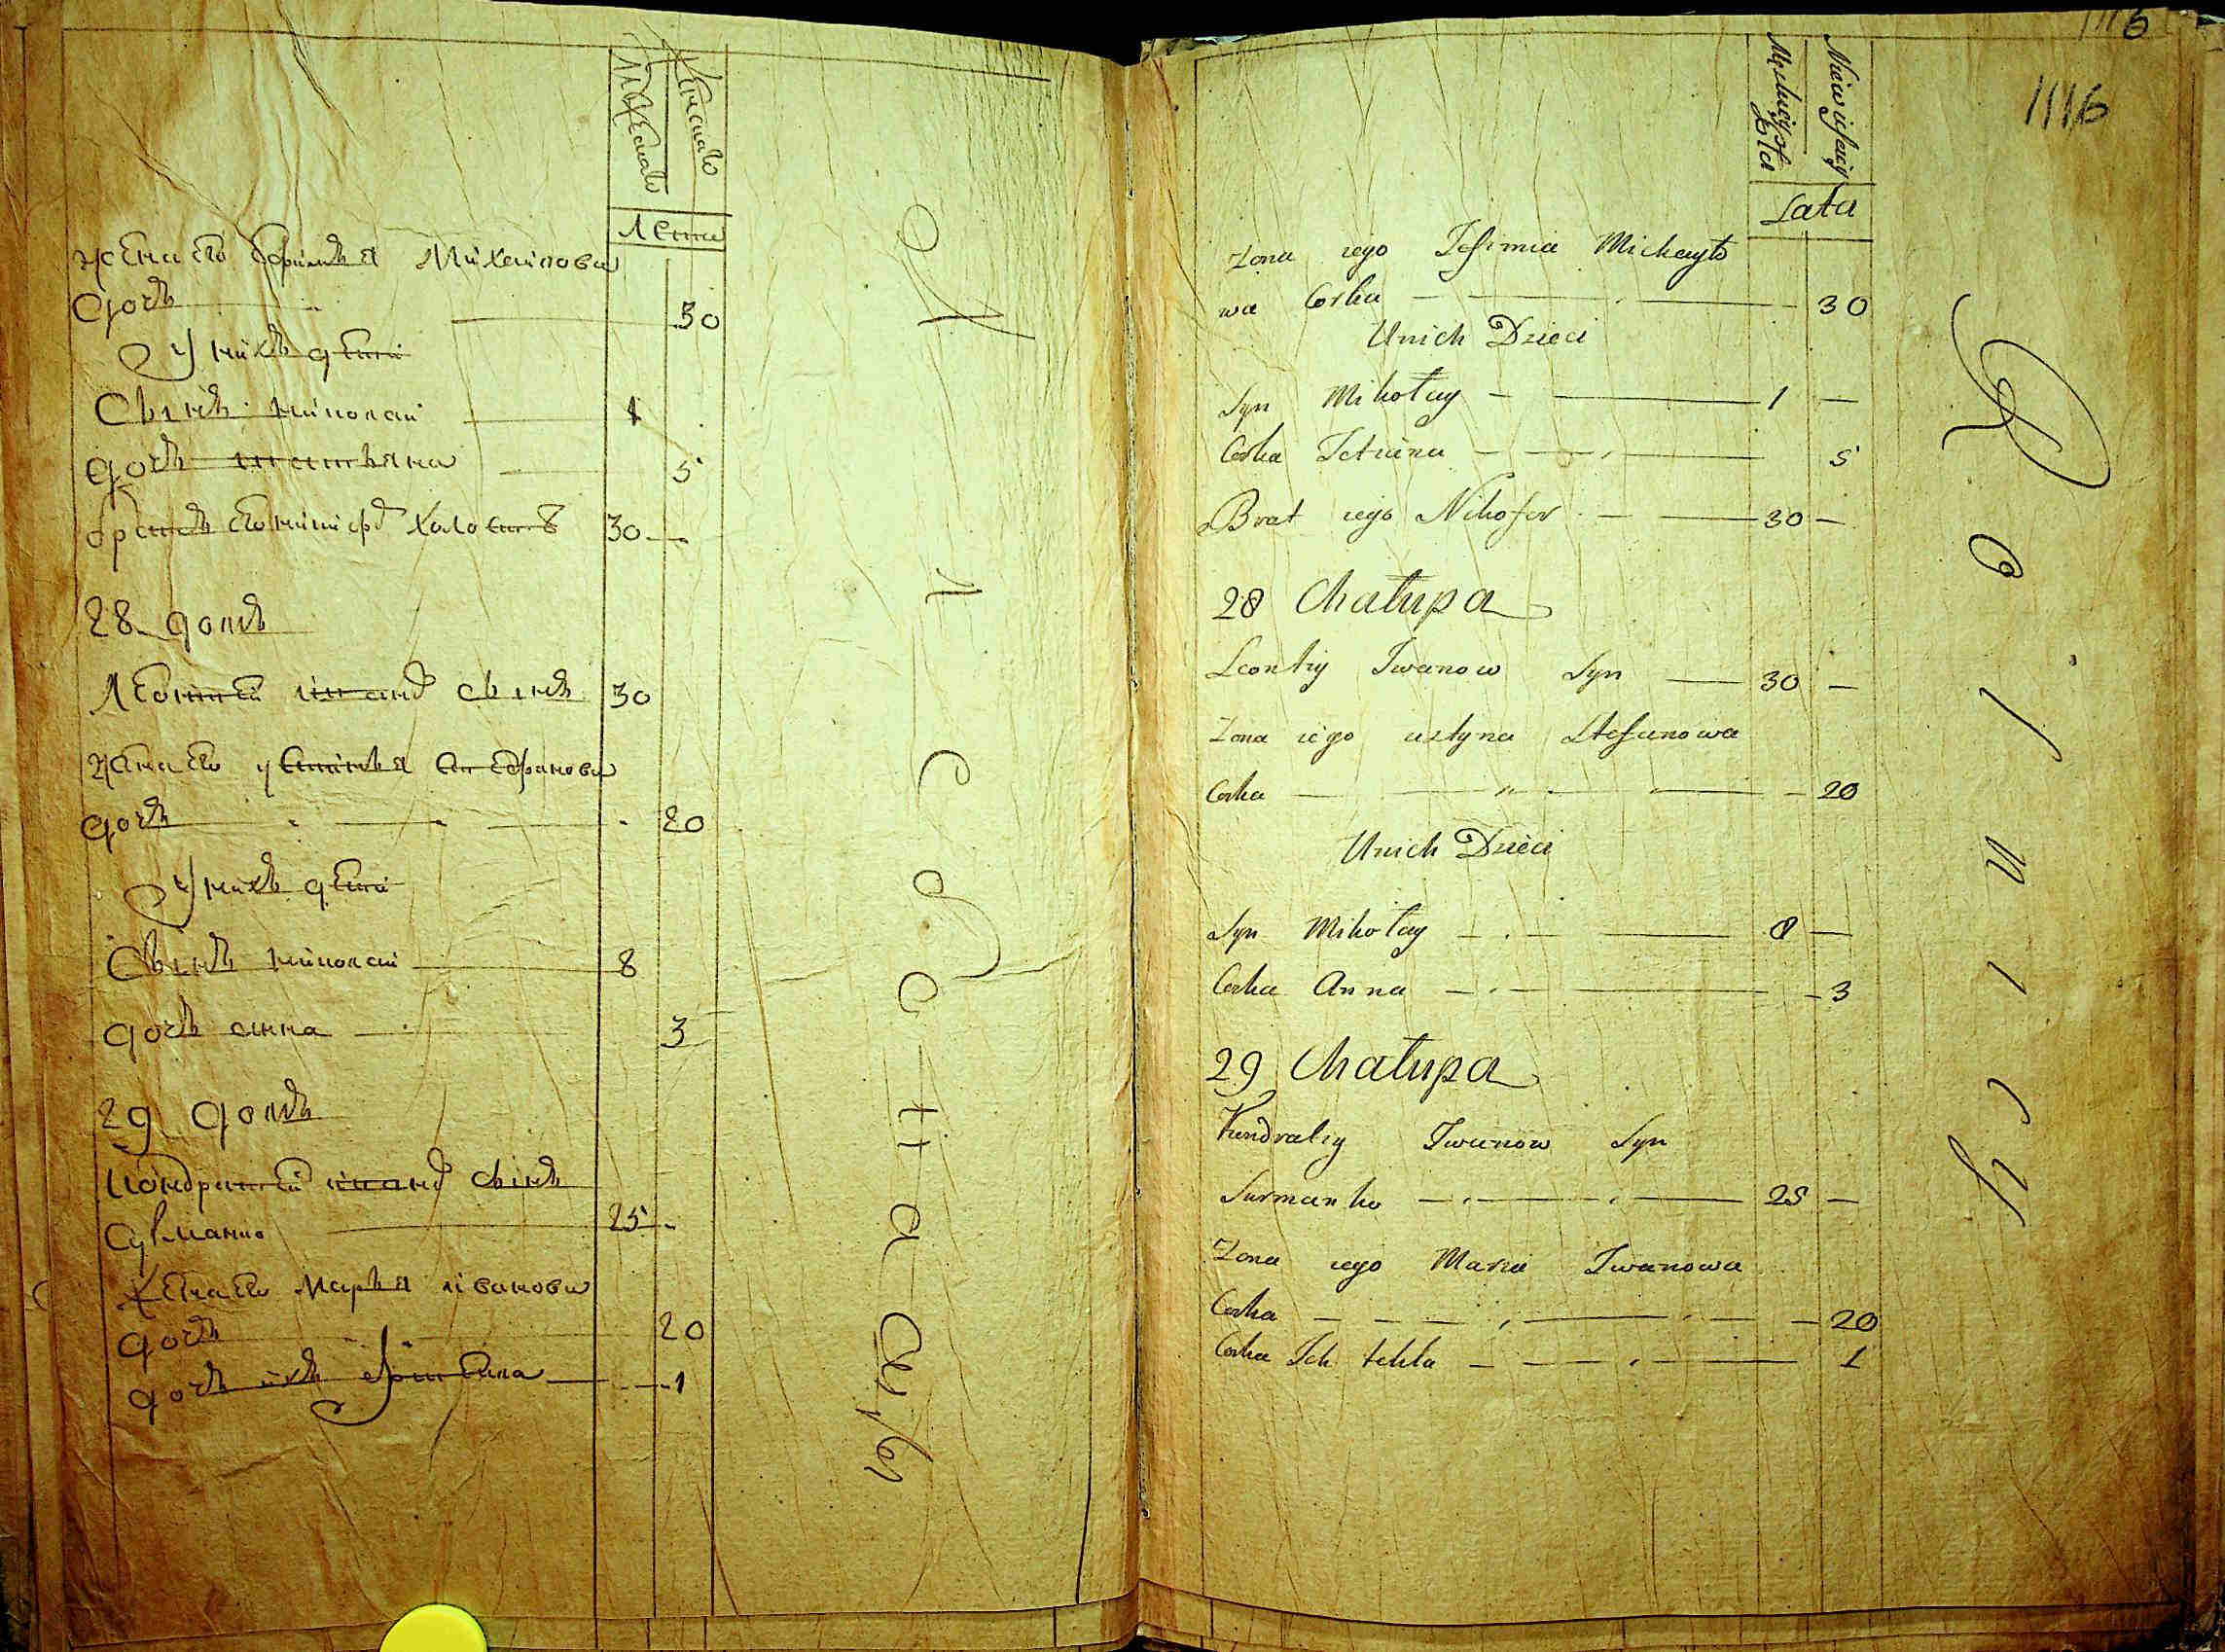 Мужеска
Женска
Лета
жена его Ефимья Михайлова
дочь 30
У них дети
Сынъ николай 1
дочь татьяна 5
братъ его никифоръ холостъ 30
28 домъ
Леонтей иванов сынъ 30
жена его устинья стефанова
дочь 20
У них дети
Сынъ николай 8
дочь анна 3
29 домъ
Кондратей иванов сынъ
Сурманко 25
Жена его Марья иванова
дочь 20
дочь ихъ 1
1116
1116
Męskiey płci
Niewieściey
Lata
Zona iego Jefimia Michayło
wa Corka — 30
Unich Dzieci
Syn Mikołay — 1 —
Corka Tetiana — 5
Brat iego Nikofor — 30 —
28 Chałupa
Leontiy Iwanow Syn — 30 —
Zona iego ustyna Stefanowa
Corka — 20
Unich Dzieci
Syn Mikołay — 8 —
Corka Anna — 3
29 Chałupa
Kundratiy Iwanow Syn
Surmanko — 25 —
Zona iego Maria Iwanowa
Corka — 20
Corka Ich tekla — 1
Rolnicy